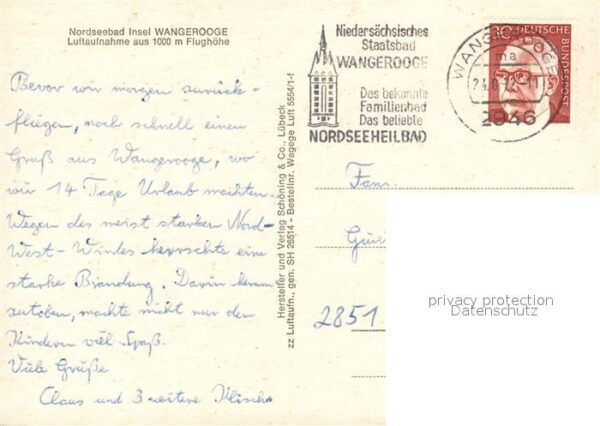 Nordseebad Insel WANGEROOGE
Luftaufnahme aus 1000 m Flughöhe
Bevor wir morgen zurück-
fliegen, noch schnell einen
Gruß aus Wangerooge, wo
wir 14 Tage Urlaub machten.
Wegen des meist starken Nord-
West-Windes herrschte eine
starke Brandung. Darin herum
zutoben, machte nicht nur den
Kindern viel Spaß.
Viele Grüße
Claus und 3 weitere
Hersteller und Verlag Schöning & Co., Lübeck
zz Luftaufn., gen. SH 26514 - Bestellnr. Wagege Luft 5554/1-f
Niedersächsisches
Staatsbad
WANGEROOGE
Das bekannte
Familienbad
Das beliebte
NORDSEEHEILBAD
WANGEROOGE
ma
2946
30
DEUTSCHE BUNDESPOST
Fam.
2851
privacy protection
Datenschutz